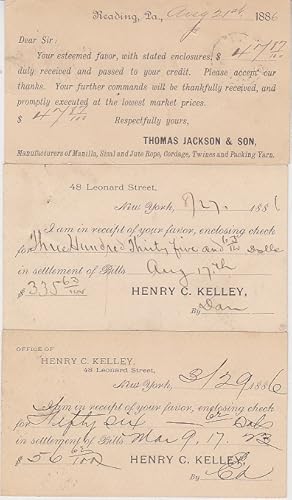 Reading, Pa., Aug 21st 1886
Dear Sir:
Your esteemed favor, with stated enclosures, $ 47 87/100
duly received and passed to your credit. Please accept our
thanks. Your further commands will be thankfully received, and
promptly executed at the lowest market prices.
$ 47 87/100 Respectfully yours,
THOMAS JACKSON & SON,
Manufacturers of Manilla, Sisal and Jute Rope, Cordage, Twines and Packing Yarn.
48 Leonard Street,
New York, 8/27. 1886
I am in receipt of your favor, enclosing check
for Three Hundred Thirty five and 63/100 Dolls
in settlement of Bills Aug 17th
$ 335 63/100 HENRY C. KELLEY,
By
OFFICE OF
HENRY C. KELLEY,
48 Leonard Street,
New York, 3/29 1886
I am in receipt of your favor, enclosing check
for Fifty Six 62/100 Dols
in settlement of Bills Mar 9, 17. 23
$ 56 62/100 HENRY C. KELLEY,
By